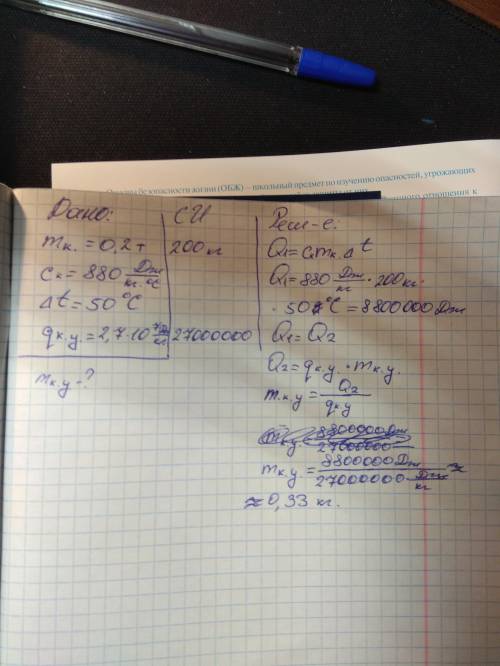 Основы безопасности жизни (ОБЖ) – школьный предмет по изучению опасностей, угрожающих
отношения к
Дано:
mк. = 0,2 т
cк = 880 Дж/кг·°C
Δt = 50°C
qк.у. = 2,7·10
mк.у - ?
СИ
200 кг
27000000
Реш-е:
Q1 = c·mк. Δt
Q1 = 880 Дж/кг · 200 кг ·
· 50 °C = 8800000 Дж
Q1 = Q2
Q2 = qк.у. · mк.у.
mк.у = Q2/qк.у
mк.у = 8800000 Дж/27000000
mк.у = 8800000 Дж/27000000 Дж/кг ≈
≈ 0,33 кг.